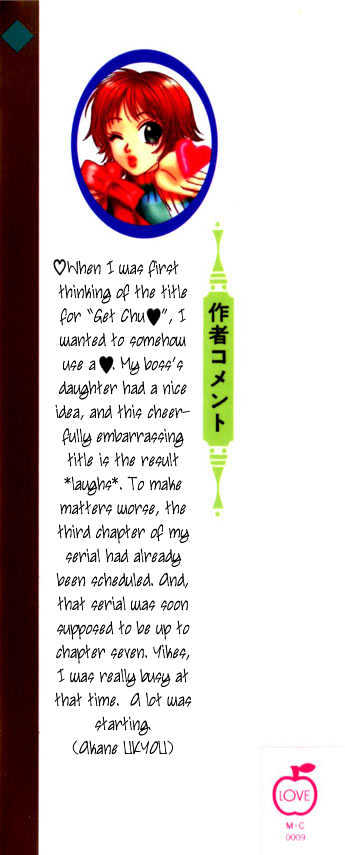 ♡When I was first
thinking of the title
for "Get Chu♥", I
wanted to somehow
use a ♥. My boss's
daughter had a nice
idea, and this cheer-
fully embarrassing
title is the result
*laughs*. To make
matters worse, the
third chapter of my
serial had already
been scheduled. And,
that serial was soon
supposed to be up to
chapter seven. Yikes,
I was really busy at
that time. A lot was
starting.
(Akane UKYOU)
作者コメント
LOVE
M・C
0009